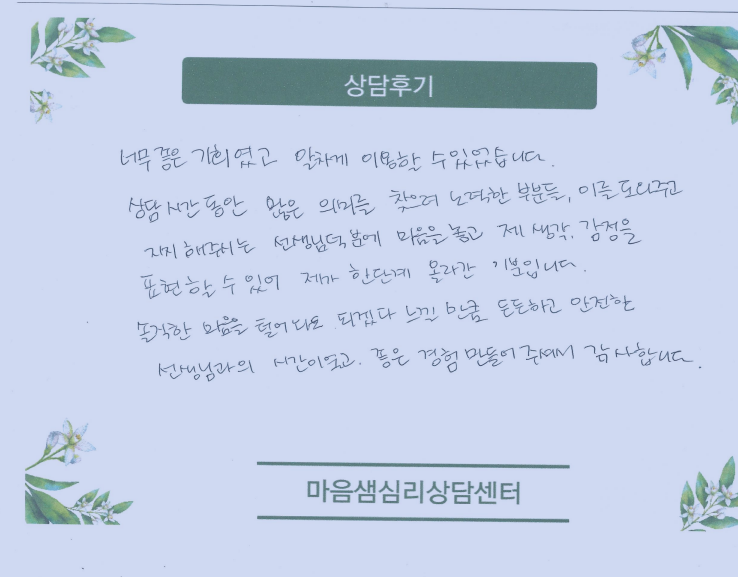 상담후기
너무 좋은 기회였고 알차게 이용할 수 있었습니다.
상담시간 동안 많은 의미를 찾으려 노력한 부분들, 이를 도와주고
지지해주시는 선생님덕분에 마음을 놓고 제 생각, 감정을
표현할 수 있어 제가 한단계 올라간 기분입니다.
솔직한 마음을 털어놔도 되겠다 느낀 만큼 든든하고 안전한
선생님과의 시간이였고. 좋은 경험 만들어 주셔서 감사합니다.
마음샘심리상담센터